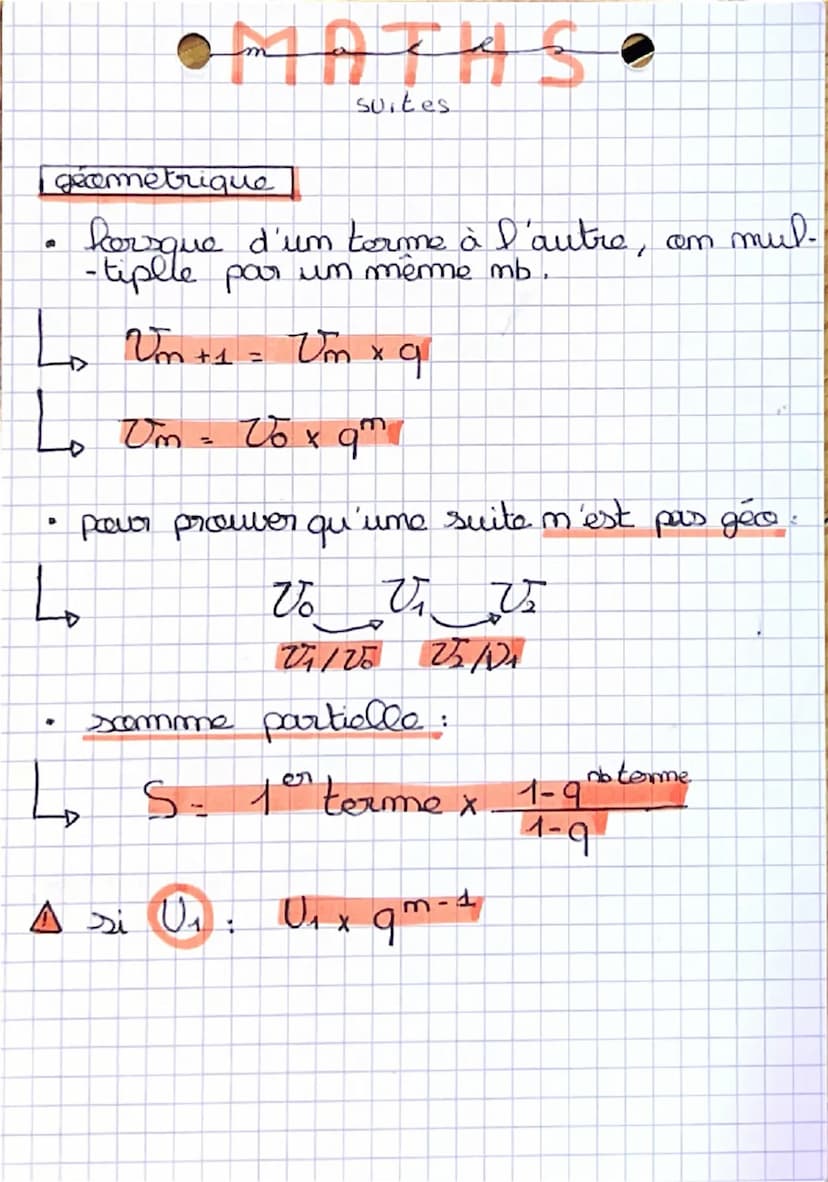 MATHS
maths
suites
géométrique
• lorsque d'un terme à l'autre, on mul-
-tiplie par un même nb.
Vn+1 = Vn x q
Vn = V0 x q^n
• pour prouver qu'une suite n'est pas géo :
V0 V1 V2
V1/V0 V2/V1
• somme partielle :
S = 1er terme x (1-q^nb terme)/(1-q)
⚠ si U1 : U1 x q^n-1